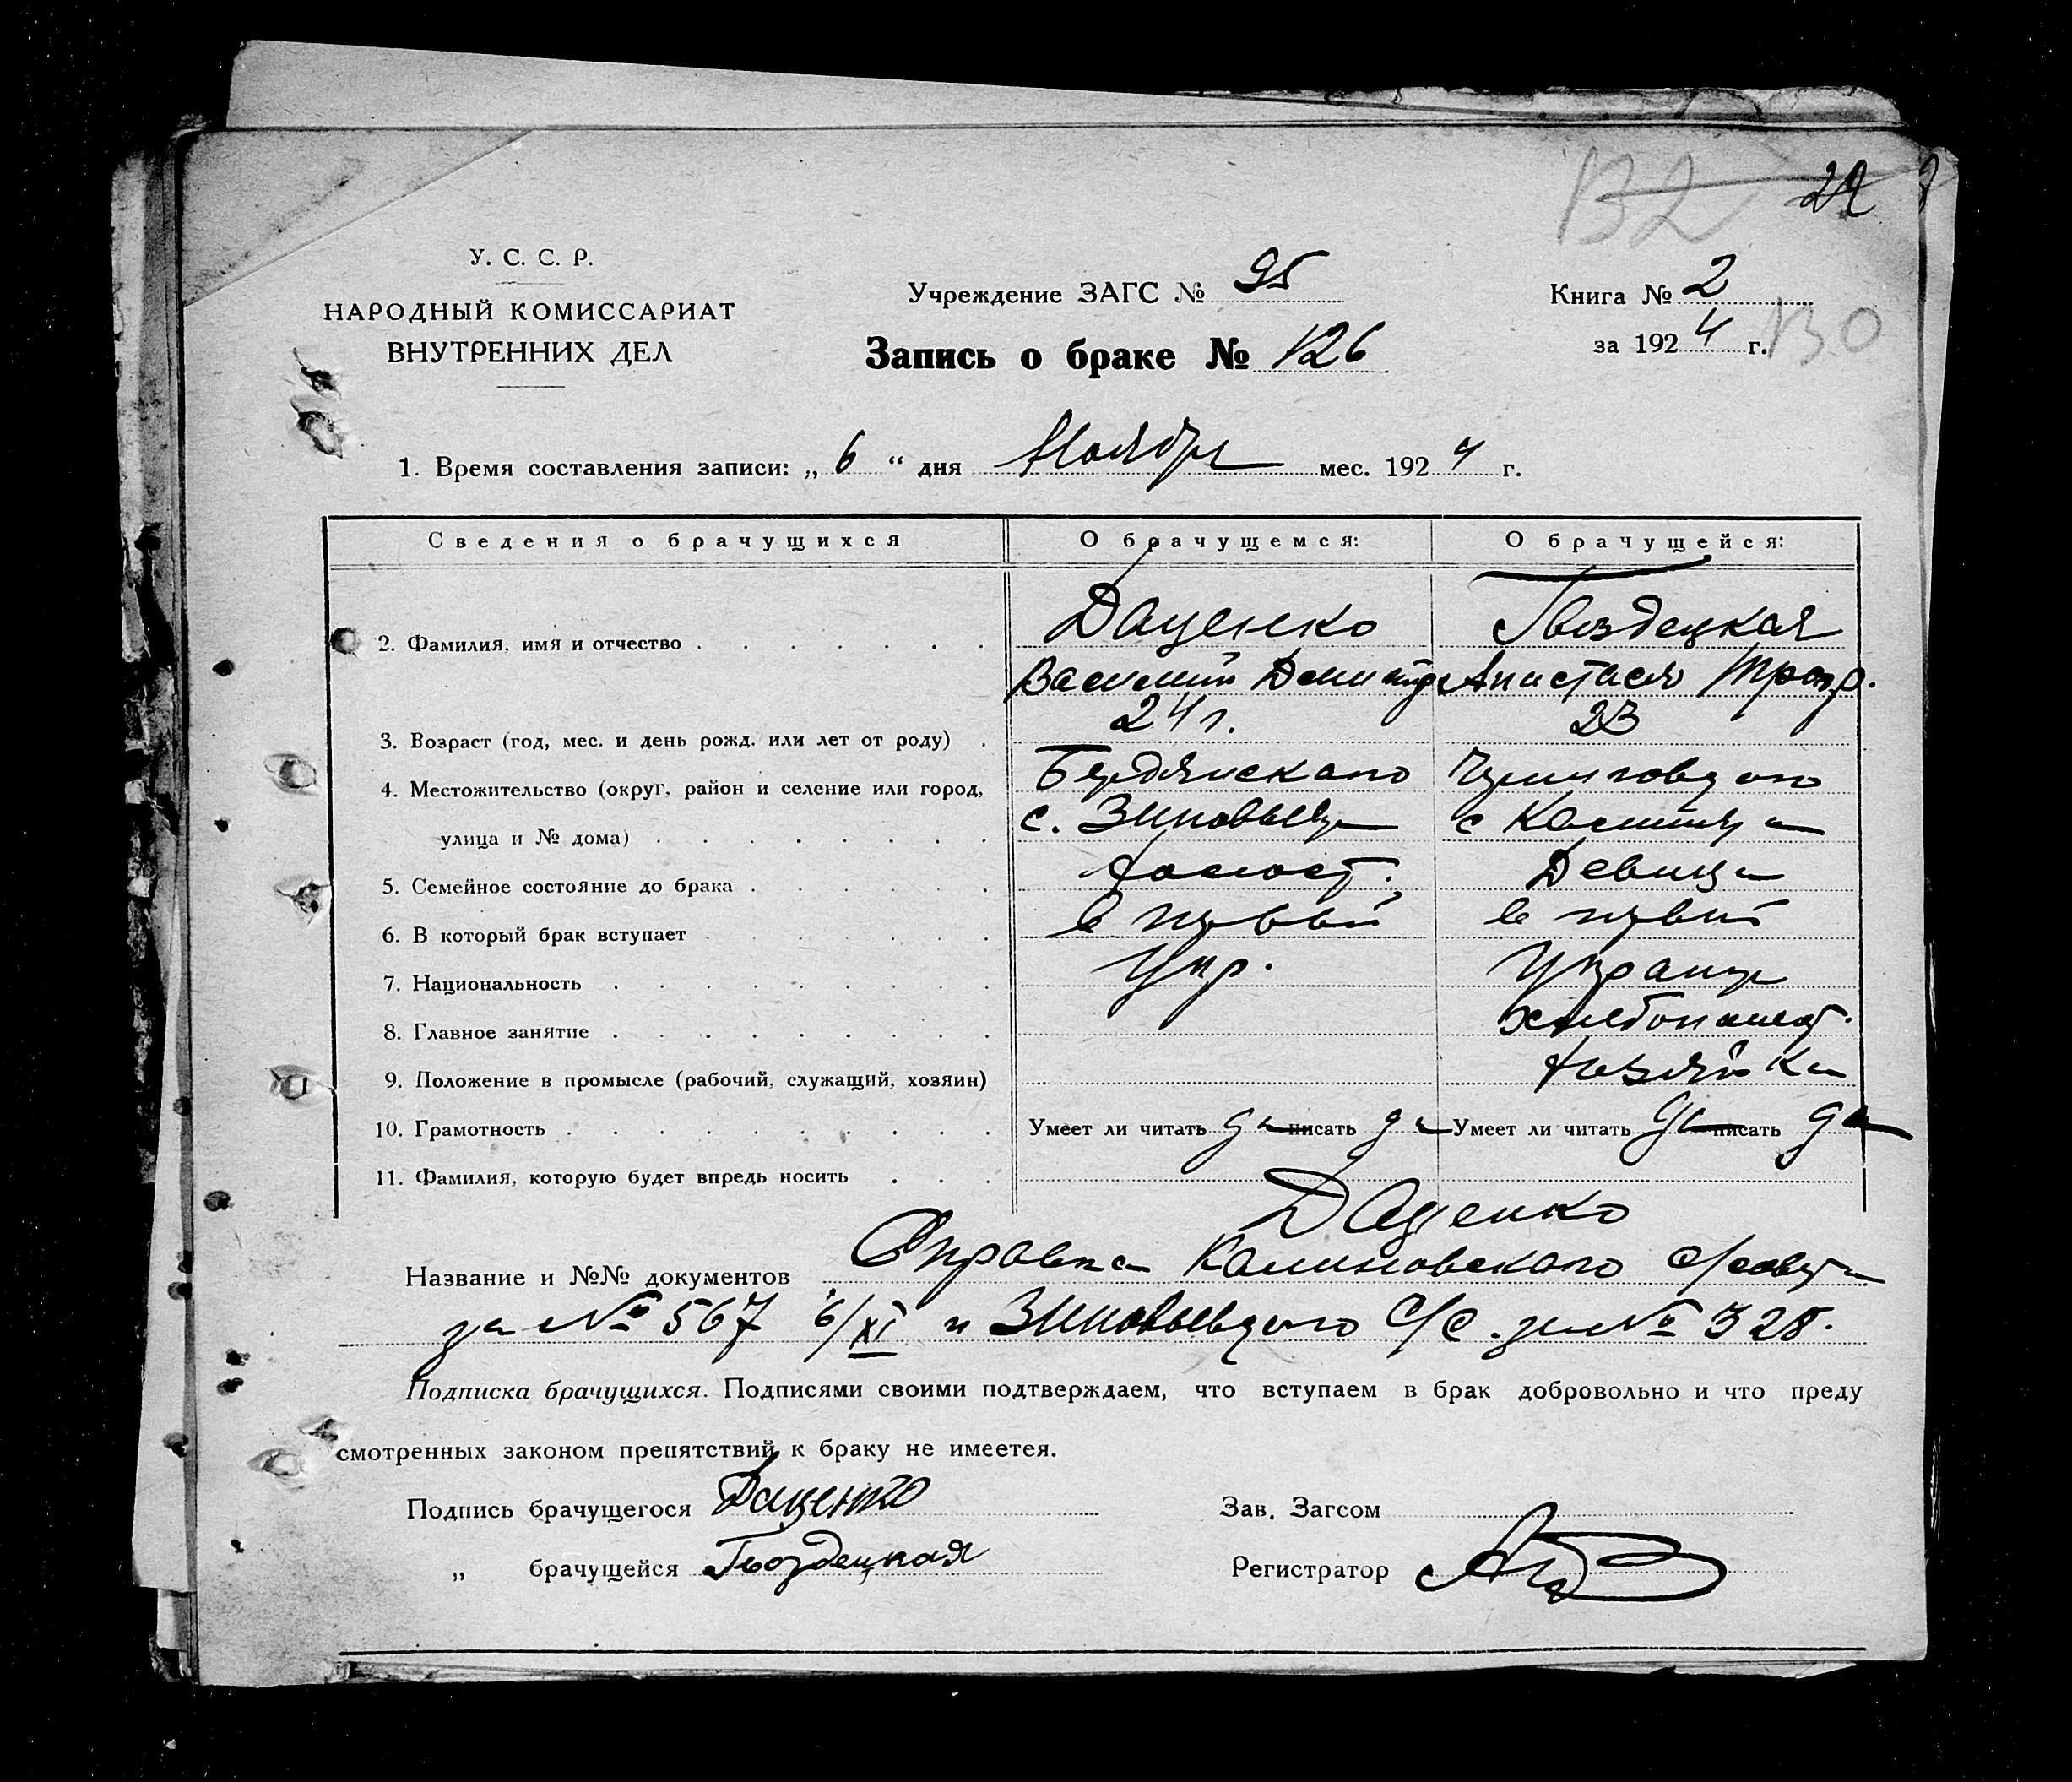 132
22
У. С. С. Р.
НАРОДНЫЙ КОМИССАРИАТ
ВНУТРЕННИХ ДЕЛ
Учреждение ЗАГС № 95
Книга № 2
за 1924 г.
130
Запись о браке № 126
1. Время составления записи: „ 6 “ дня Ноября мес. 1924 г.
Сведения о брачущихся О брачущемся: О брачущейся:
Даценко Гвоздецкая
2. Фамилия, имя и отчество
Василий Дмитр Анастасия
24 г. 23
3. Возраст (год, мес. и день рожд. или лет от роду)
Бердянского
4. Местожительство (округ, район и селение или город,
с. с
улица и № дома)
5. Семейное состояние до брака Холост. Девица
6. В который брак вступает в первый в первый
7. Национальность Укр. Украин
8. Главное занятие хлебопаш.
9. Положение в промысле (рабочий, служащий, хозяин) хозяйка
10. Грамотность Умеет ли читать да писать да Умеет ли читать да писать да
11. Фамилия, которую будет впредь носить
Даценко
Название и №№ документов Справка Калиновского с/совета
за № 567 6/XI и С/С. за № 328.
Подписка брачущихся. Подписями своими подтверждаем, что вступаем в брак добровольно и что преду
смотренных законом препятствий к браку не имеетея.
Подпись брачущегося Даценко Зав. Загсом
„ брачущейся Гвоздецкая Регистратор